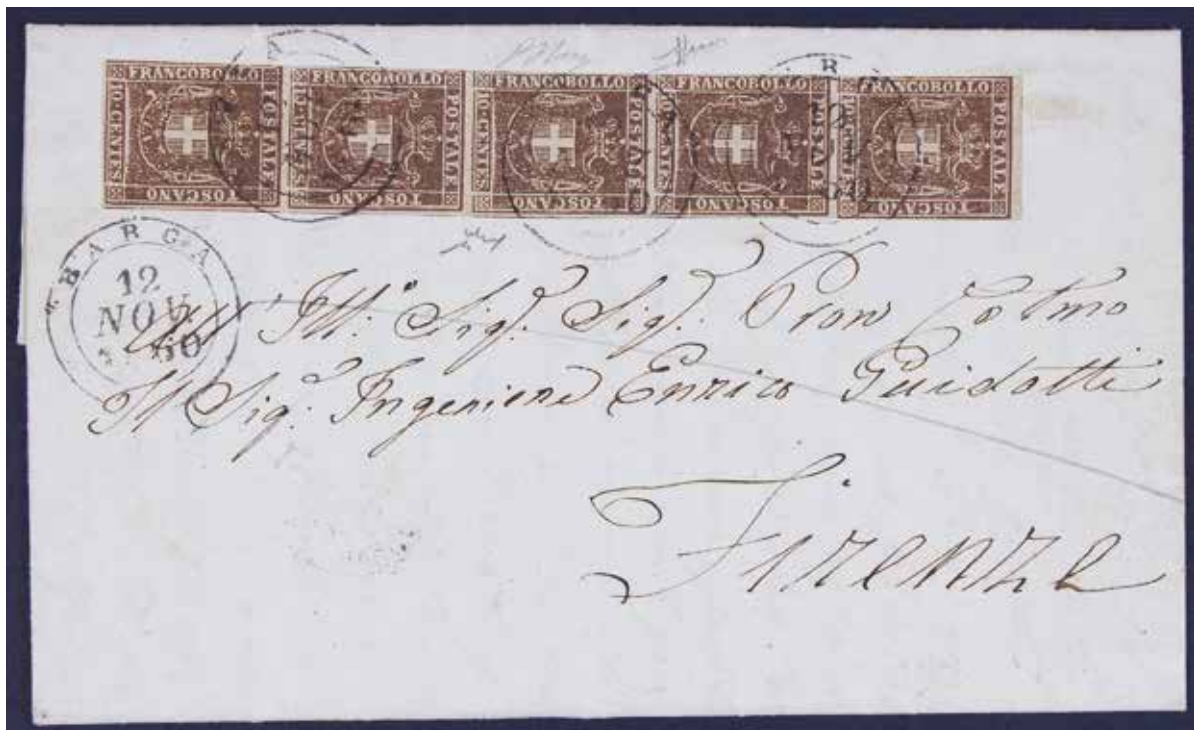 FRANCOBOLLO POSTALE TOSCANO 10 CENTES
FRANCOBOLLO POSTALE TOSCANO 10 CENTES
FRANCOBOLLO POSTALE TOSCANO 10 CENTES
FRANCOBOLLO POSTALE TOSCANO 10 CENTES
FRANCOBOLLO POSTALE TOSCANO 10 CENTES
BARGA
12
NOV
60
Ill.º Sig.r Sig.r Pron Colmo
Il Sig.r Ingeniere Enrico Guidotti
Firenze